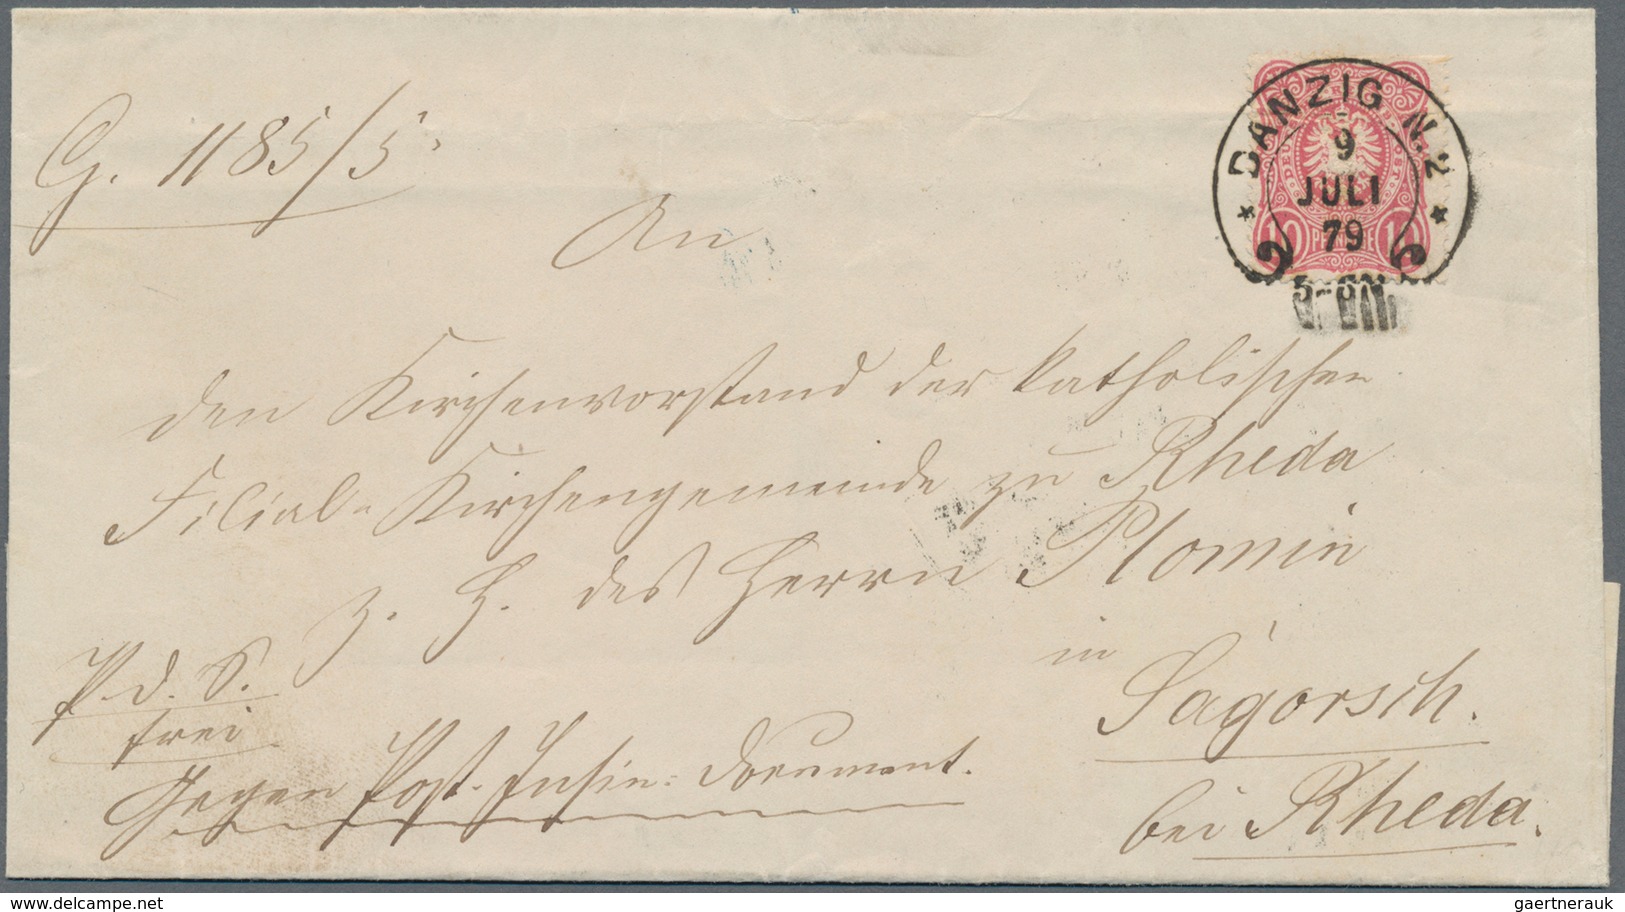 G. 1185/5.
DANZIG N. 2
9
JULI
79
5-6N
10 PFENNIGE 10
An
den Kirchenvorstand der katholischen
Filial-Kirchengemeinde zu Rheda
z. H. des Herrn Plomin
in
Sagorsch.
bei Rheda.
P. d. S.
frei
Gegen Post-Insin: Document.
delcampe.net
gaertnerauk